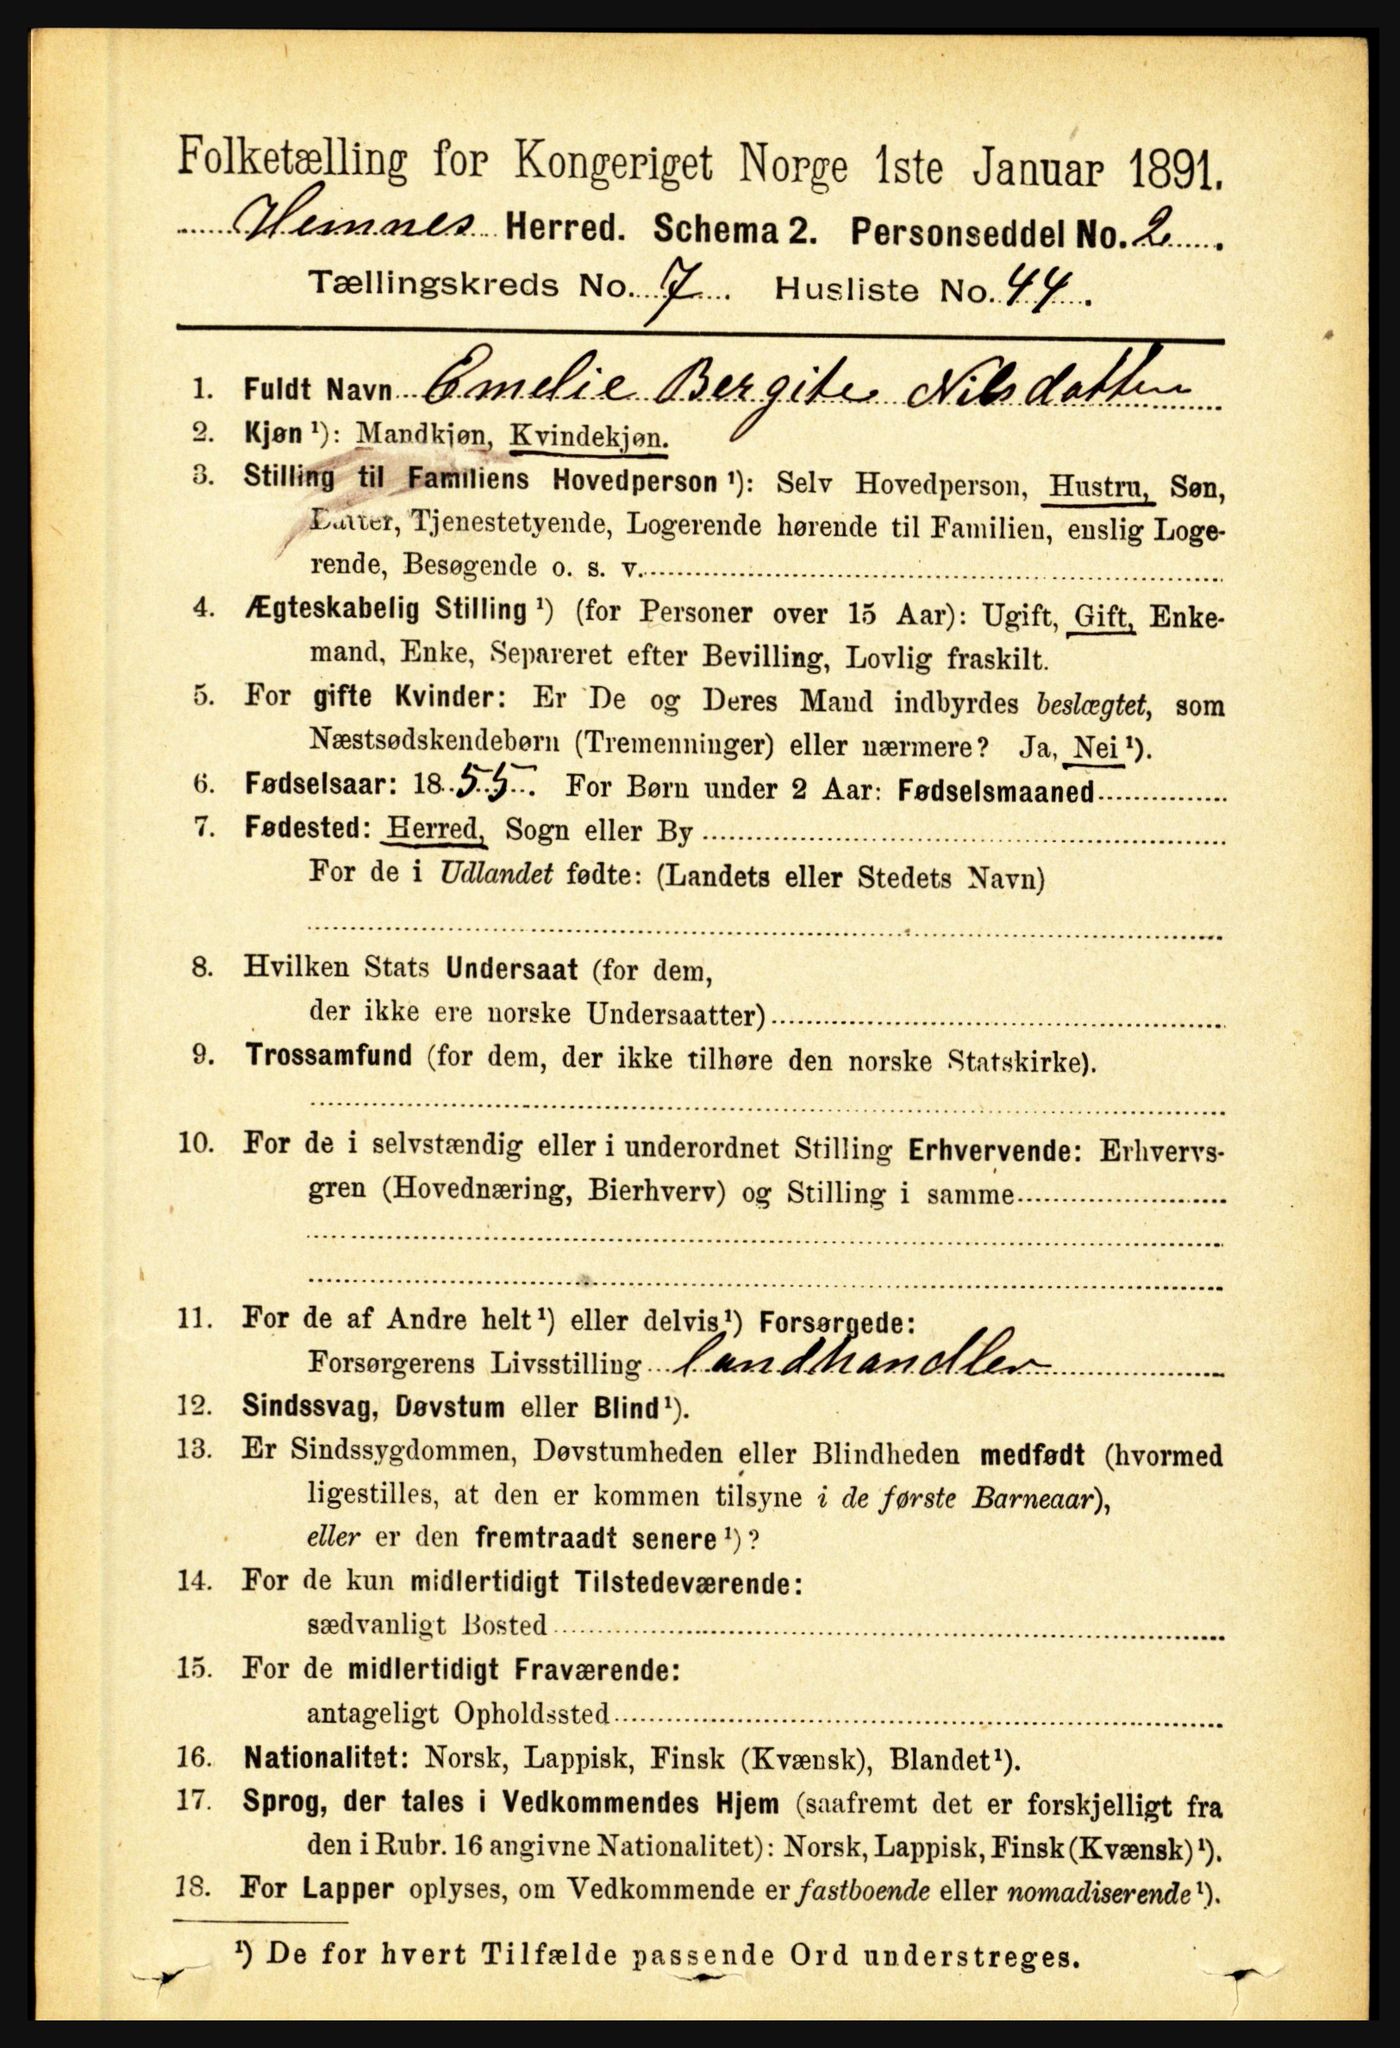 Folketælling for Kongeriget Norge 1ste Januar 1891.
Hemnes Herred. Schema 2. Personseddel No. 2.
Tællingskreds No. 7. Husliste No. 44.
1. Fuldt Navn Emelie Bergite Nilsdatter
2. Kjøn¹): Mandkjøn, Kvindekjøn.
3. Stilling til Familiens Hovedperson¹): Selv Hovedperson, Hustru, Søn,
Datter, Tjenestetyende, Logerende hørende til Familien, enslig Loge-
rende, Besøgende o. s. v.
4. Ægteskabelig Stilling¹) (for Personer over 15 Aar): Ugift, Gift, Enke-
mand, Enke, Separeret efter Bevilling, Lovlig fraskilt.
5. For gifte Kvinder: Er De og Deres Mand indbyrdes beslægtet, som
Næstsødskendebørn (Tremenninger) eller nærmere? Ja, Nei¹).
6. Fødselsaar: 1855. For Børn under 2 Aar: Fødselsmaaned
7. Fødested: Herred, Sogn eller By
For de i Udlandet fødte: (Landets eller Stedets Navn)
8. Hvilken Stats Undersaat (for dem,
der ikke ere norske Undersaatter)
9. Trossamfund (for dem, der ikke tilhøre den norske Statskirke).
10. For de i selvstændig eller i underordnet Stilling Erhvervende: Erhvervs-
gren (Hovednæring, Bierhverv) og Stilling i samme
11. For de af Andre helt¹) eller delvis¹) Forsørgede:
Forsørgerens Livsstilling Landhandler
12. Sindssvag, Døvstum eller Blind¹).
13. Er Sindssygdommen, Døvstumheden eller Blindheden medfødt (hvormed
ligestilles, at den er kommen tilsyne i de første Barneaar),
eller er den fremtraadt senere¹)?
14. For de kun midlertidigt Tilstedeværende:
sædvanligt Bosted
15. For de midlertidigt Fraværende:
antageligt Opholdssted
16. Nationalitet: Norsk, Lappisk, Finsk (Kvænsk), Blandet¹).
17. Sprog, der tales i Vedkommendes Hjem (saafremt det er forskjelligt fra
den i Rubr. 16 angivne Nationalitet): Norsk, Lappisk, Finsk (Kvænsk)¹).
18. For Lapper oplyses, om Vedkommende er fastboende eller nomadiserende¹).
¹) De for hvert Tilfælde passende Ord understreges.